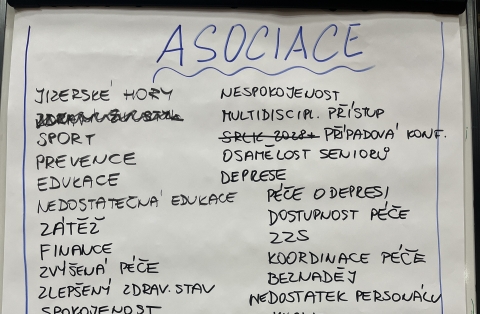 ASOCIACE
JIZERSKÉ HORY
SPORT
PREVENCE
EDUKACE
NEDOSTATEČNÁ EDUKACE
ZÁTĚŽ
FINANCE
ZVÝŠENÁ PÉČE
ZLEPŠENÝ ZDRAV. STAV
SPOKOJENOST
NESPOKOJENOST
MULTIDISCIPL. PŘÍSTUP
PŘÍPADOVÁ KONF.
OSAMĚLOST SENIORŮ
DEPRESE
PÉČE O DEPRESI
DOSTUPNOST PÉČE
ZZS
KOORDINACE PÉČE
BEZNADĚJ
NEDOSTATEK PERSONÁLU